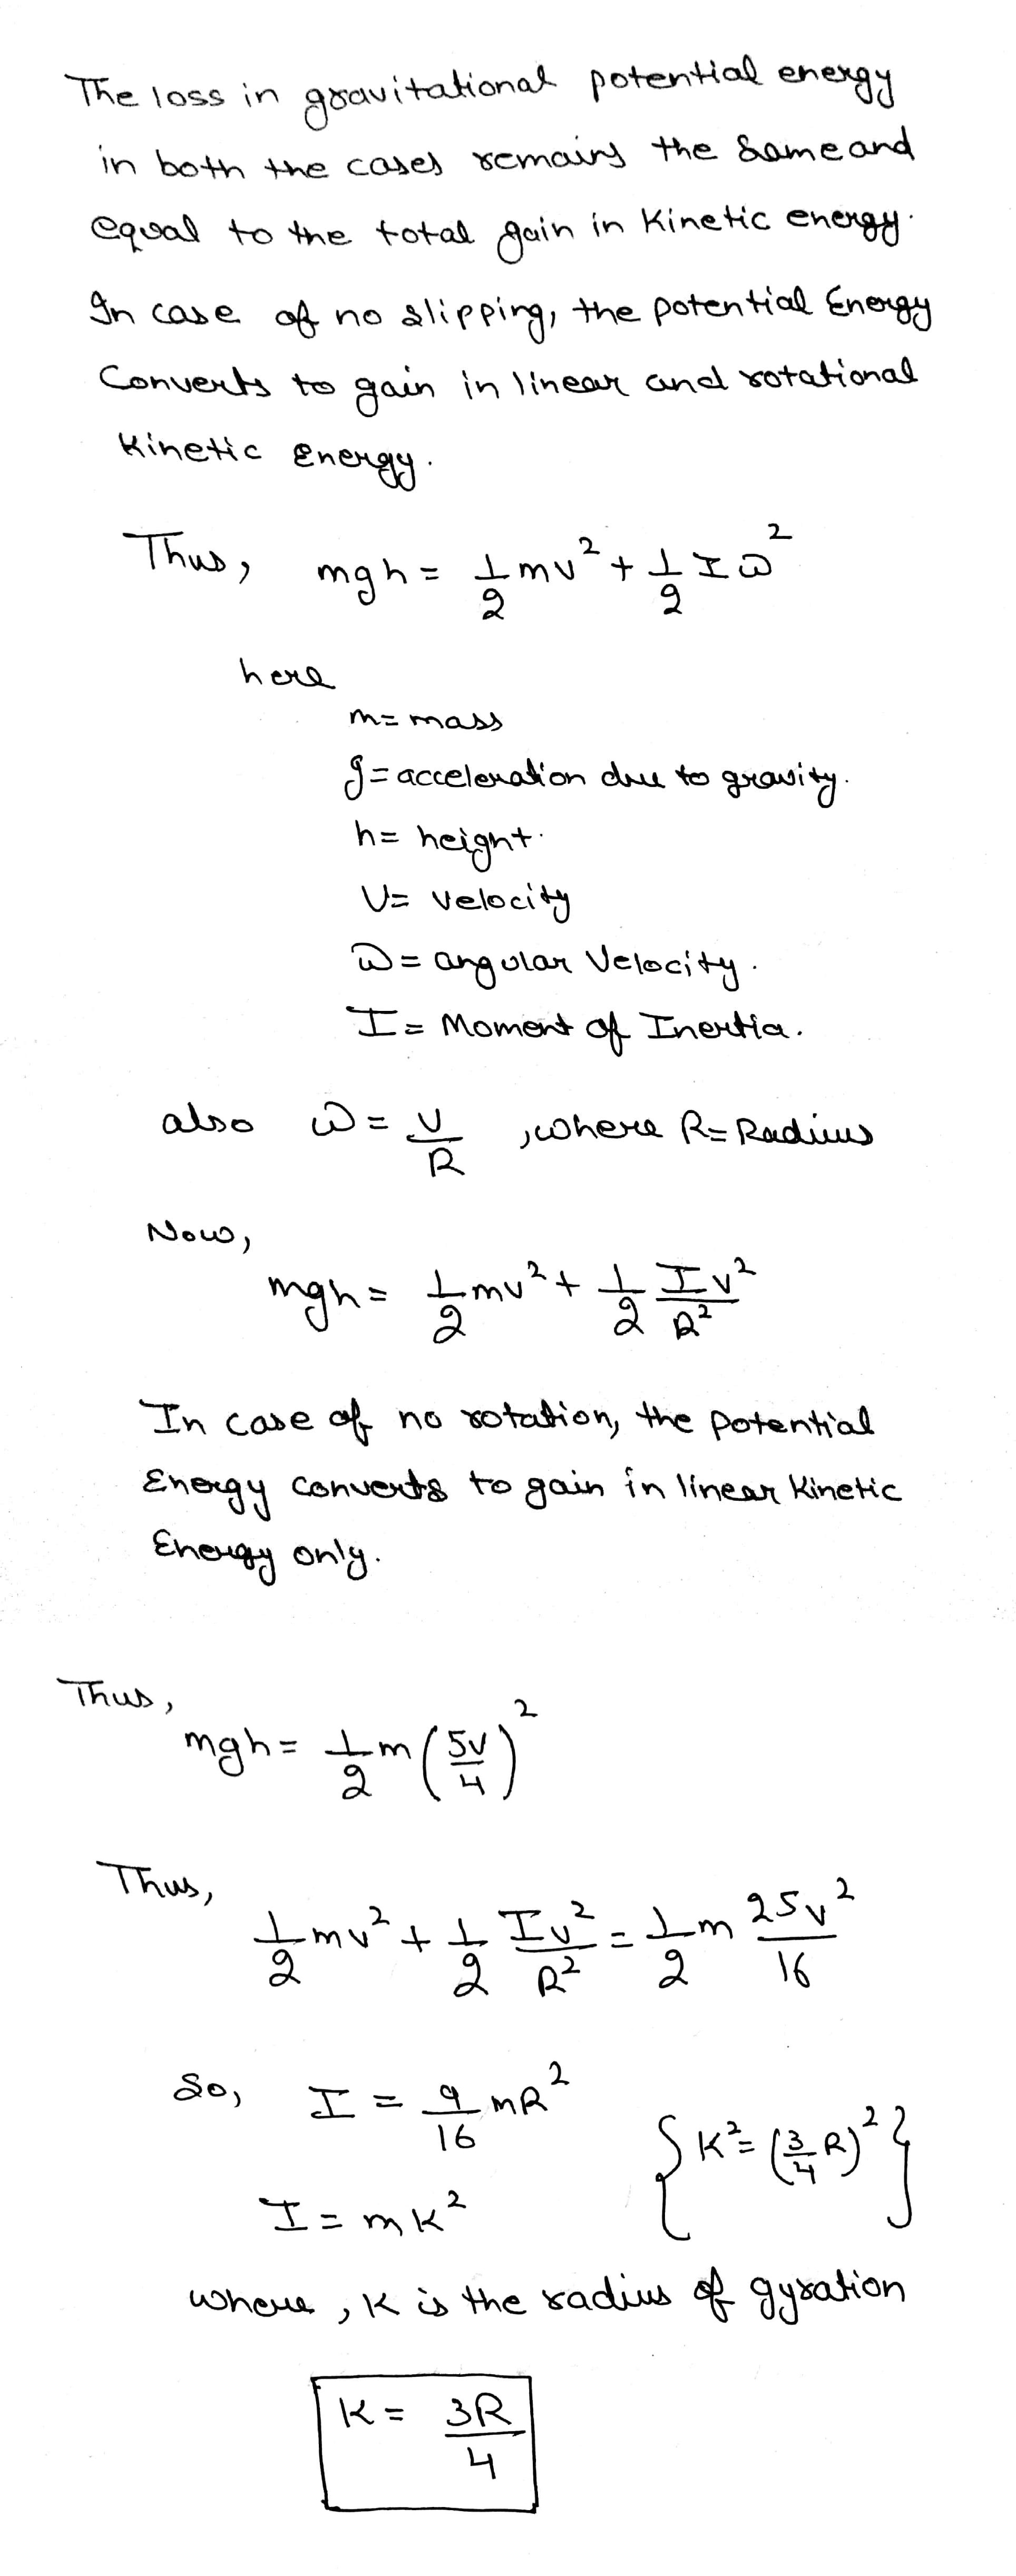 The loss in gravitational potential energy
in both the cases remains the same and
equal to the total gain in Kinetic energy.
In case of no slipping, the potential Energy
Converts to gain in linear and rotational
Kinetic Energy.
Thus, mgh = 1/2 mv² + 1/2 Iω²
here
m = mass
g = acceleration due to gravity.
h = height.
V = velocity
ω = angular Velocity.
I = Moment of Inertia.
also ω = v/R , where R = Radius
Now,
mgh = 1/2 mv² + 1/2 Iv²/R²
In case of no rotation, the potential
Energy converts to gain in linear Kinetic
Energy only.
Thus,
mgh = 1/2 m (5v/4)²
Thus,
1/2 mv² + 1/2 Iv²/R² = 1/2 m 25v²/16
So, I = 9/16 mR²
{K² = (3/4 R)²}
I = mK²
where, K is the radius of gyration
K = 3R/4